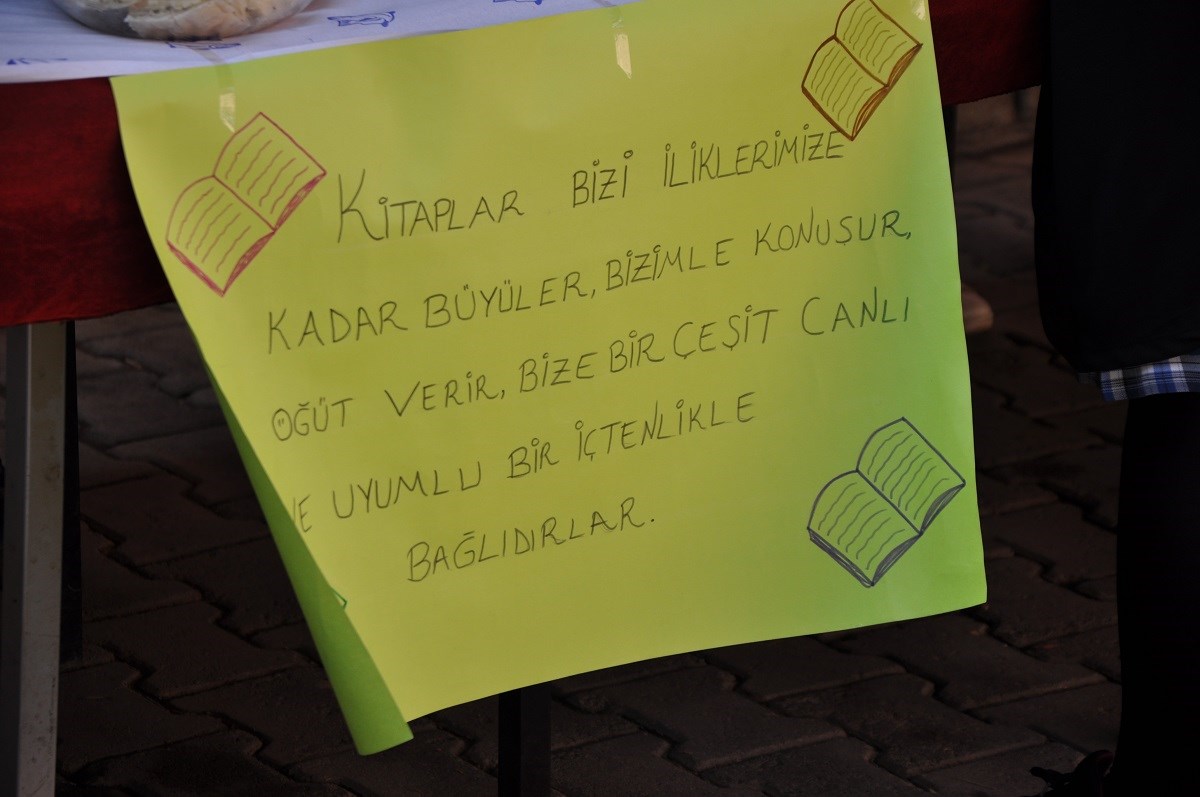 KİTAPLAR BİZİ İLİKLERİMİZE
KADAR BÜYÜLER, BİZİMLE KONUŞUR,
ÖĞÜT VERİR, BİZE BİR ÇEŞİT CANLI
VE UYUMLU BİR İÇTENLİKLE
BAĞLIDIRLAR.